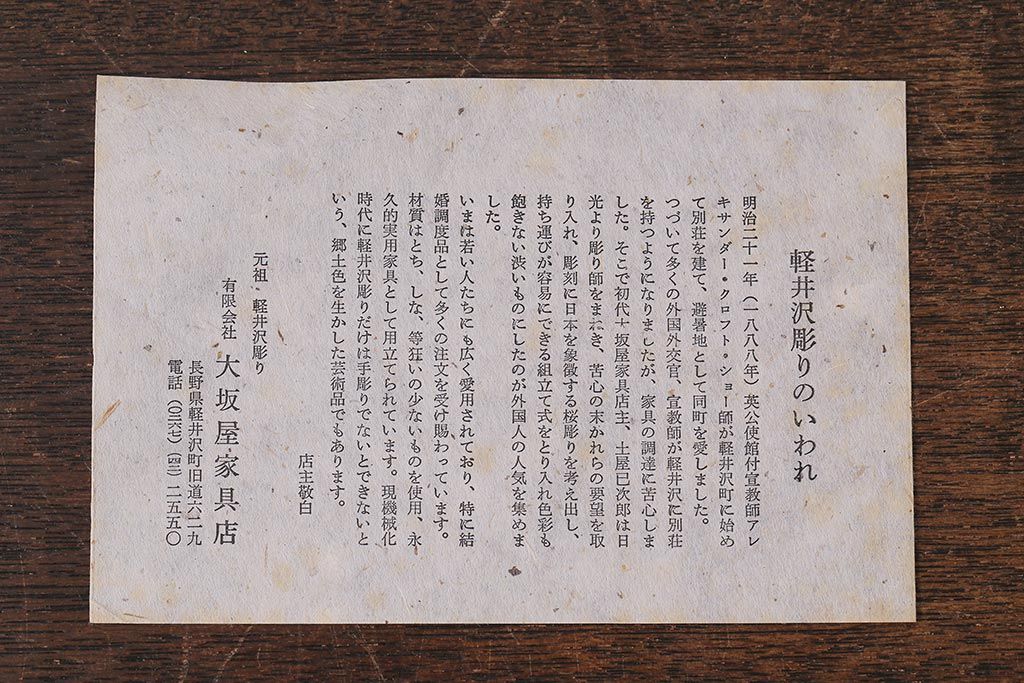 軽井沢彫りのいわれ
明治二十一年（一八八八年）英公使館付宣教師アレ
キサンダー・クロフト・ショー師が軽井沢町に始め
て別荘を建て、避暑地として同町を愛しました。
つづいて多くの外国外交官、宣教師が軽井沢に別荘
を持つようになりましたが、家具の調達に苦心しま
した。そこで初代大坂屋家具店主、土屋巳次郎は日
光より彫り師をまねき、苦心の末かれらの要望を取
り入れ、彫刻に日本を象徴する桜彫りを考え出し、
持ち運びが容易にできる組立て式をとり入れ色彩も
飽きない渋いものにしたのが外国人の人気を集めま
した。
いまは若い人たちにも広く愛用されており、特に結
婚調度品として多くの注文を受け賜わっています。
材質はとち、しな、等狂いの少ないものを使用、永
久的実用家具として用立てられています。現機械化
時代に軽井沢彫りだけは手彫りでないとできないと
いう、郷土色を生かした芸術品でもあります。
店主敬白
元祖・軽井沢彫り
有限会社 大坂屋家具店
長野県軽井沢町旧道六二九
電話（〇二六七）（四二）二五五〇